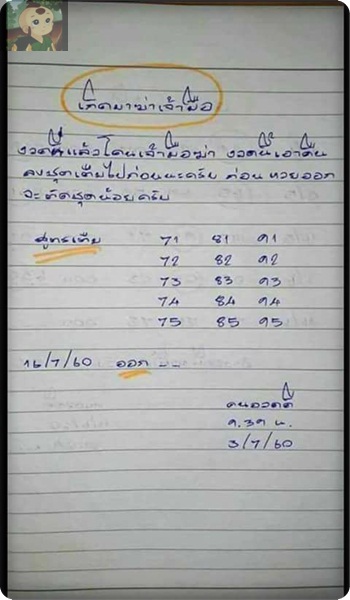 เกิดมาฆ่าเจ้ามือ
งวดที่แล้วโดนเจ้ามือฆ่า งวดนี้เอาคืน
ลงชุดเต็มไปก่อนนะครับ ก่อนหวยออก
จะตัดชุดน้อยครับ
สูตรเต็ม 71 81 91
72 82 92
73 83 93
74 84 94
75 85 95
16/7/60 ออก --
คนอวดดี
9.39 น.
3/7/60